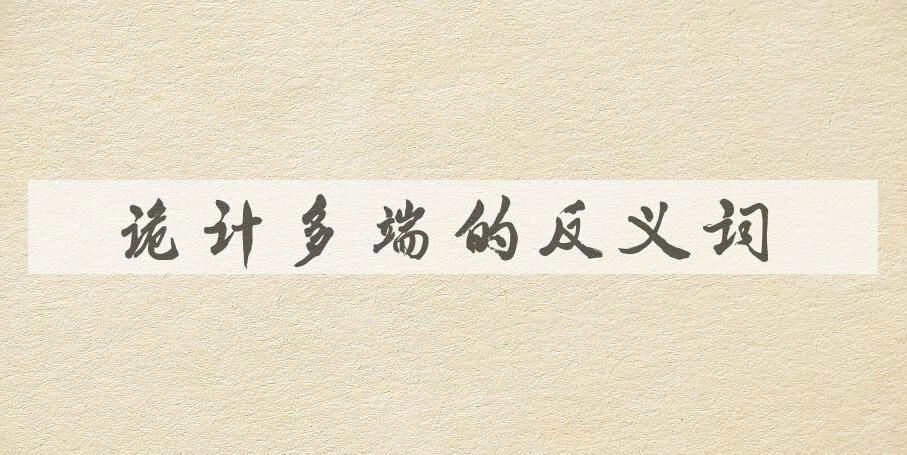 诡计多端的反义词